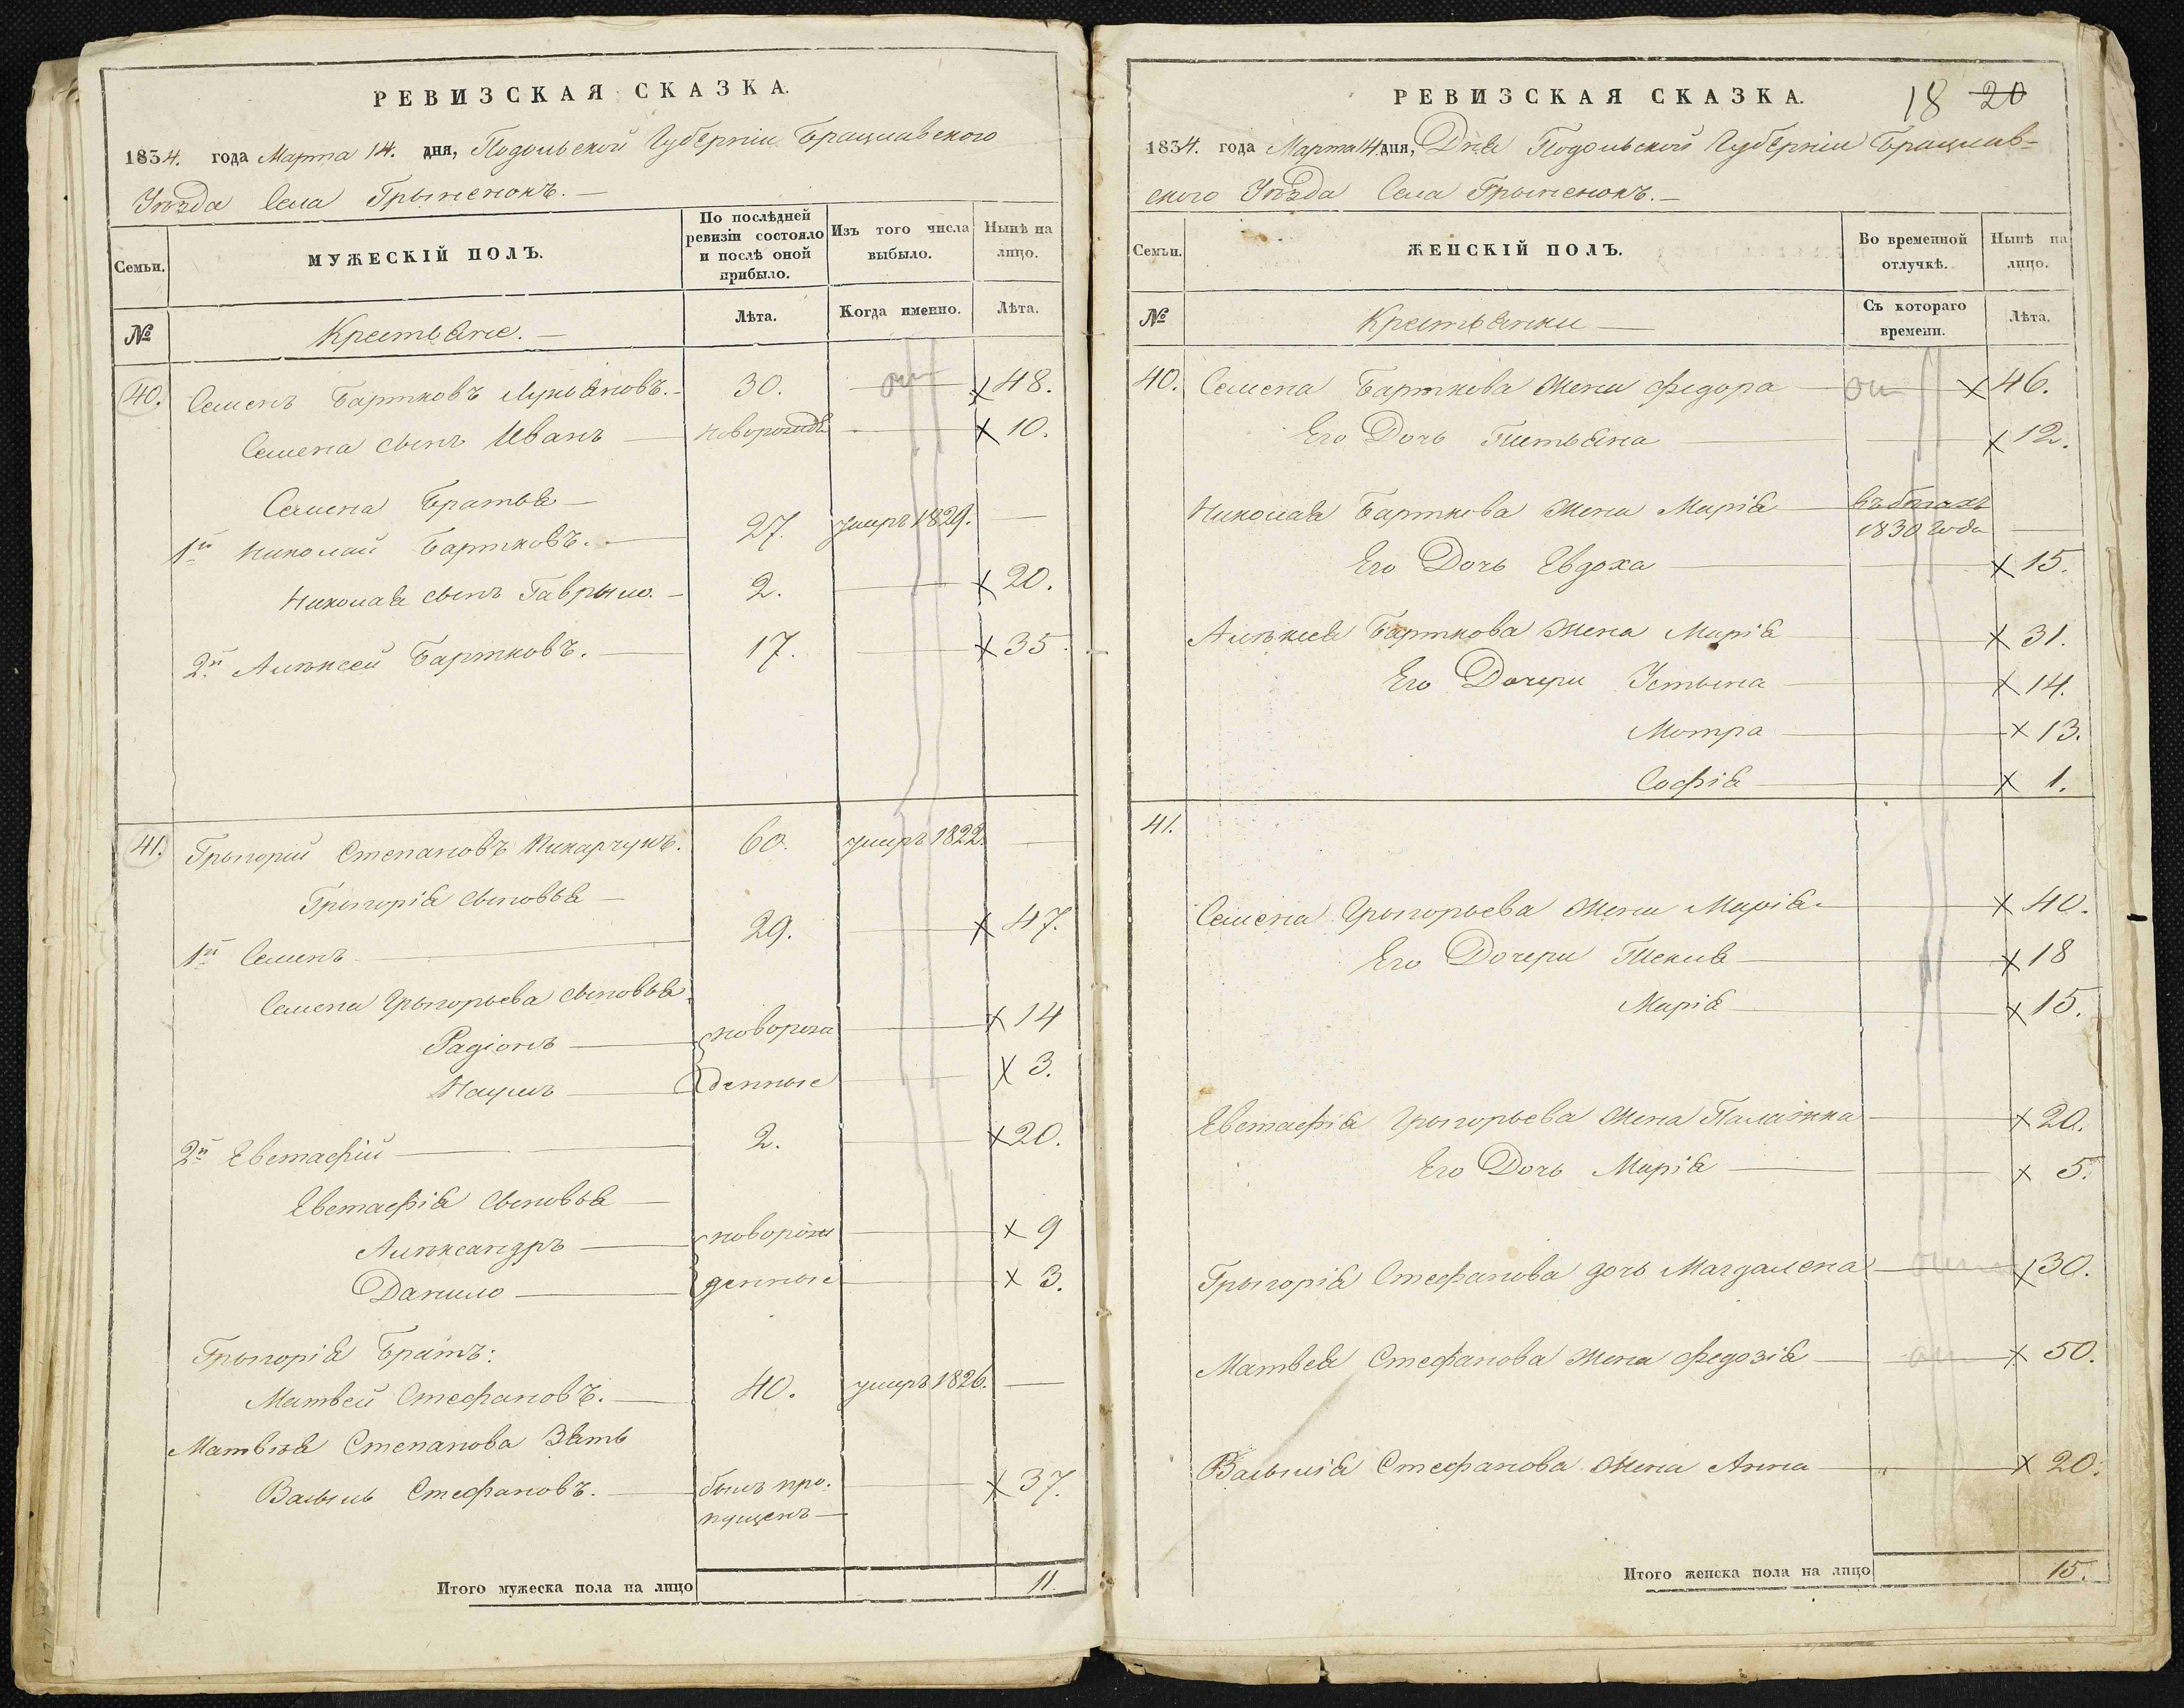 РЕВИЗСКАЯ СКАЗКА.
1834. года Марта 14. дня, Подольской Губерніи Брацлавского
Уѣзда Села Грыженокъ. —
Семьи.
МУЖЕСКІЙ ПОЛЪ.
По послѣдней ревизіи состояло и послѣ оной прибыло.
Изъ того числа выбыло.
Нынѣ на лицо.
№
Крестьяне. —
Лѣта.
Когда именно.
Лѣта.
40. Семенъ Бартковъ Лукьяновъ. — 30. — x 48.
Семена сынъ Иванъ — новорожде — x 10.
Семена Братья —
1й Николай Бартковъ. — 27. умиръ 1829. —
Николая сынъ Гаврыло. — 2. — x 20.
2й Алѣксей Бартковъ. — 17. — x 35.
41. Грыгорій Степановъ Кихарчукъ. 60. умиръ 1822. —
Грыгорія сыновья —
1й Семенъ — 29. — x 47.
Семена Грыгорьева сыновья
Радіонъ — новорож — x 14
Наумъ — денные — x 3.
2й Евстафій — 2. — x 20.
Евстафія Сыновья —
Алѣксандръ — новорож — x 9
Данило — денные — x 3.
Грыгорія Братъ:
Матвей Стефановъ. — 40. умиръ 1826. —
Матвѣя Степанова Зять
Васыль Стефановъ. — былъ про- — x 37.
пущенъ —
Итого мужеска пола на лицо 11.
РЕВИЗСКАЯ СКАЗКА. 18 20
1834. года Марта 14 дня, Дня Подольской Губерніи Брацлав-
ского Уѣзда Села Грыженокъ. —
Семьи.
ЖЕНСКІЙ ПОЛЪ.
Во временной отлучкѣ.
Нынѣ на лицо.
№
Крестьянки —
Съ котораго времени.
Лѣта.
40. Семена Барткова Жена Федора — x 46.
Его Дочь Тетьяна — x 12.
Николая Барткова Жена Марія — въ бѣгахъ
1830 года —
Его Дочь Евдоха — x 15.
Алѣксея Барткова Жена Марія — x 31.
Его Дочери Устына — x 14.
Мотра — x 13.
Софія — x 1.
41.
Семена Грыгорьева Жена Марія — x 40.
Его Дочери Текля — x 18
Марія — x 15.
Евстафія Грыгорьева Жена Палажка — x 20.
Его Дочь Марія — x 5.
Грыгорія Стефанова дочь Магдалена — x 30.
Матвея Стефанова Жена Федозія — x 50.
Васыля Стефанова Жена Анна — x 20.
Итого женска пола на лицо 15.